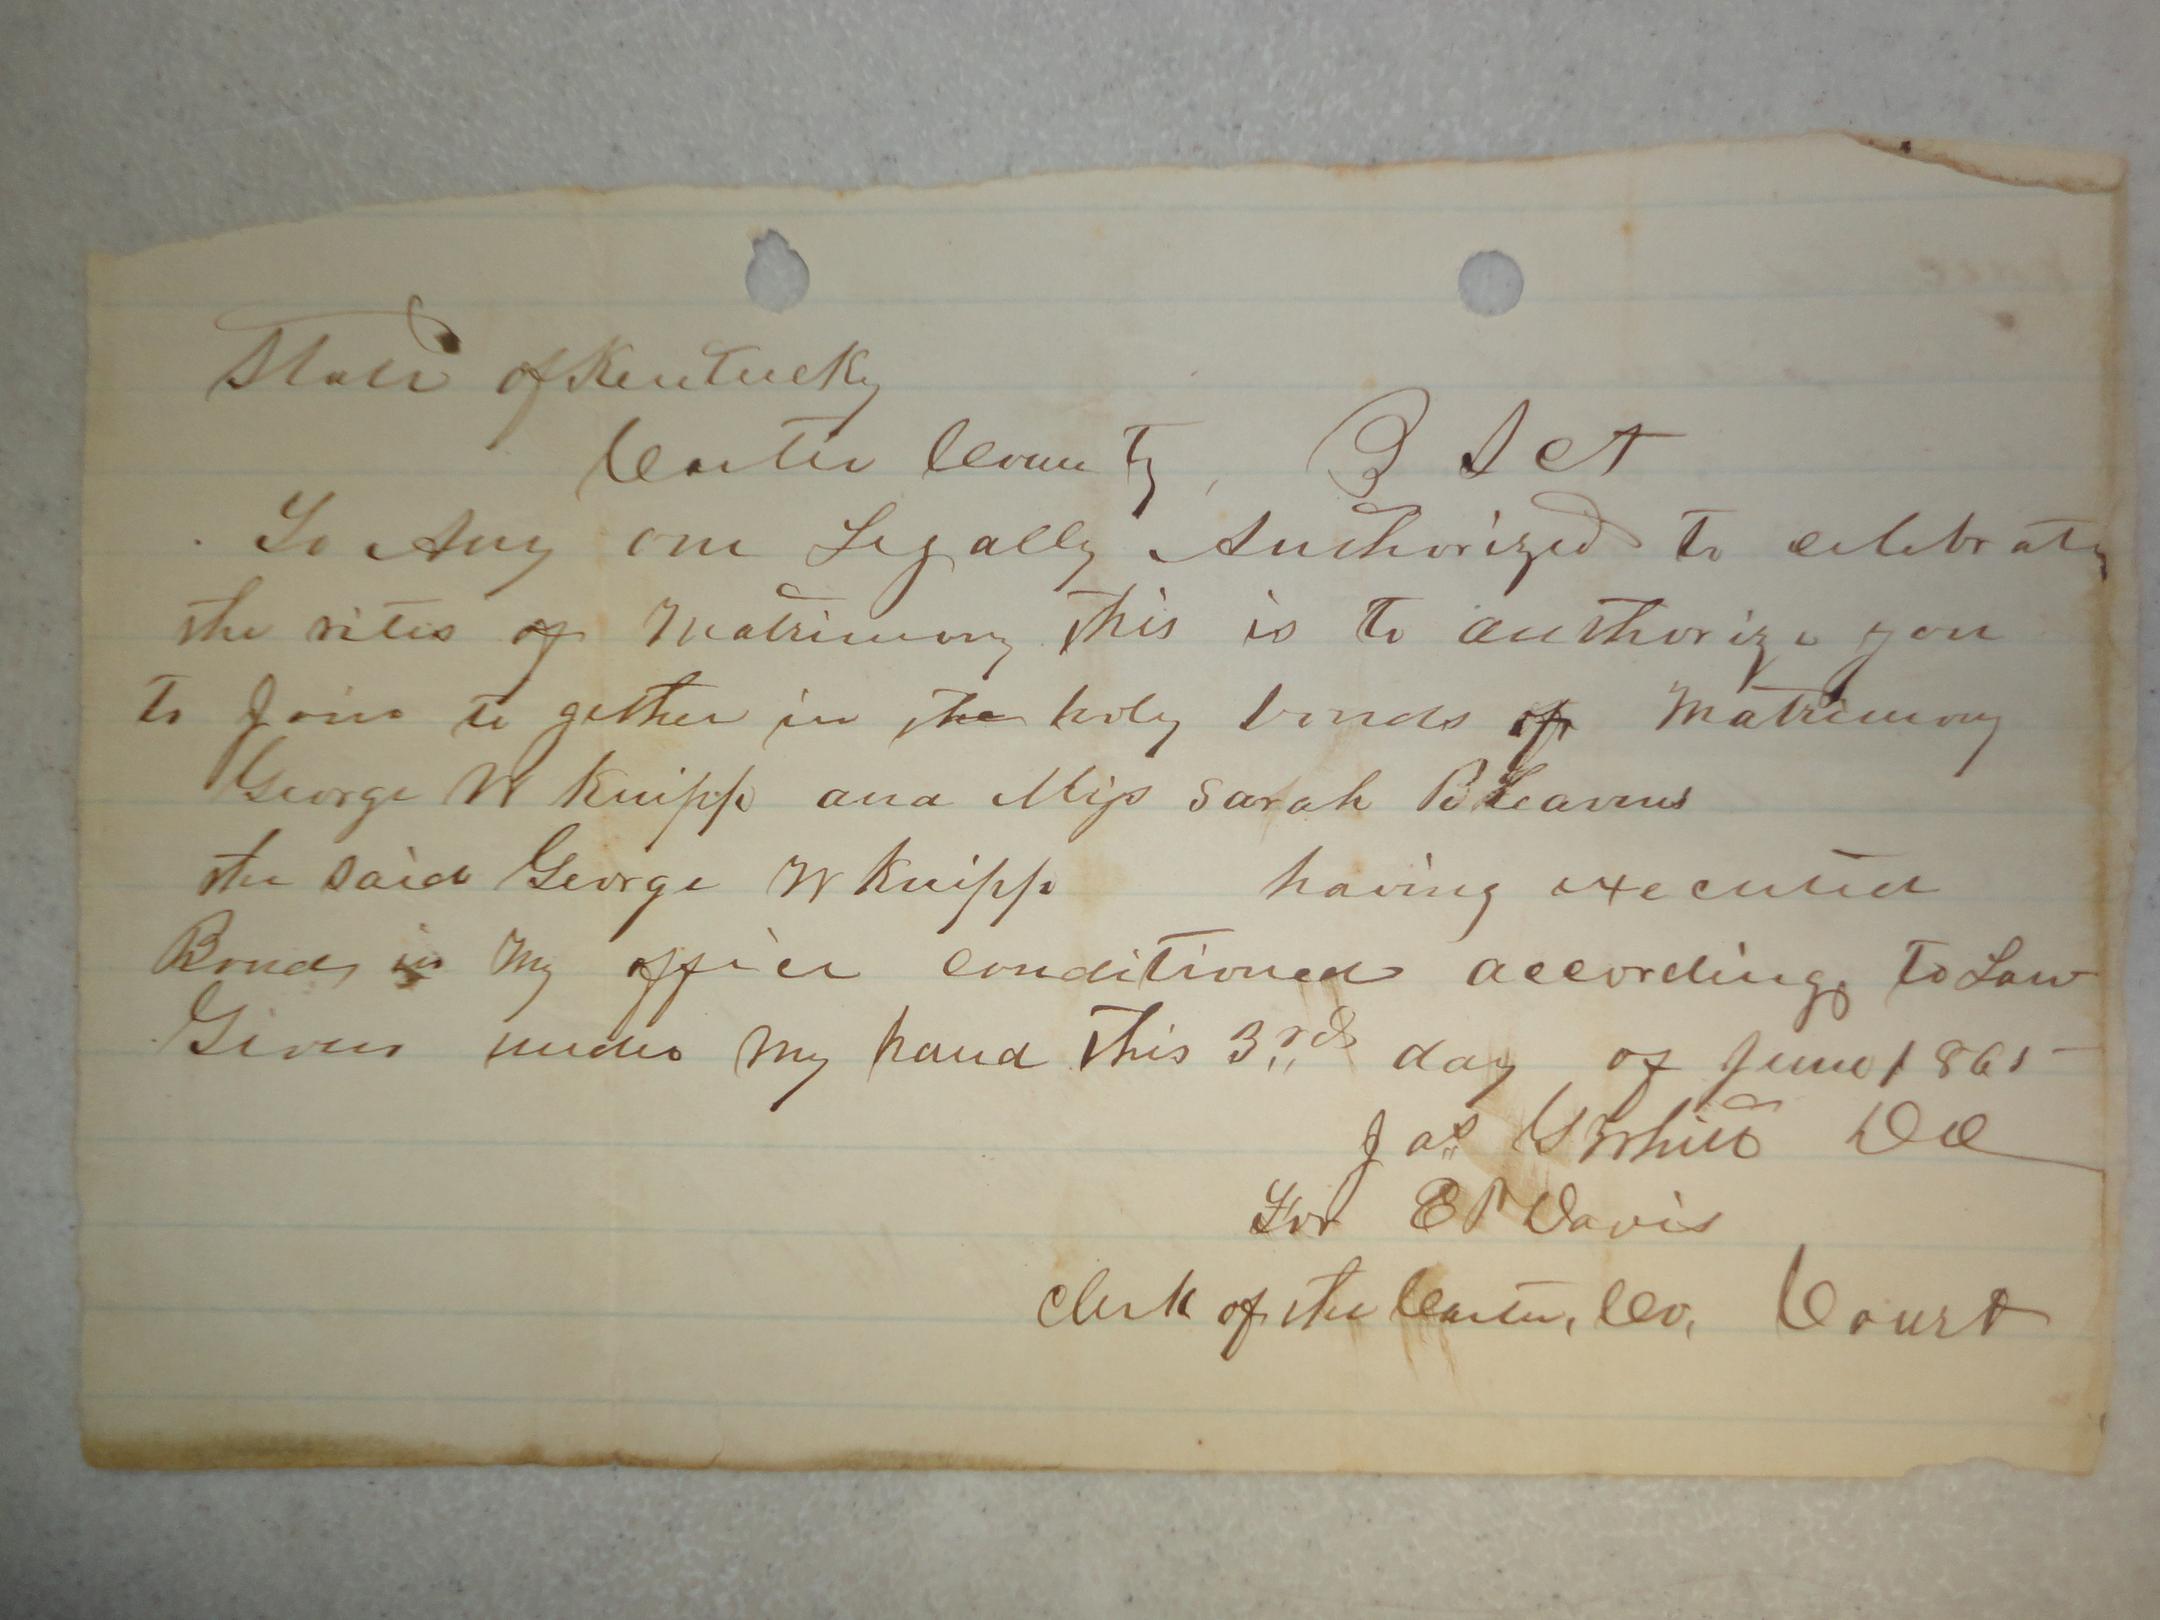 State of Kentucky
Carter County, Sct
To Any one Legally Authorized to celebrate
the rites of Matrimony This is to authorize you
to Join to gether in the holy bonds of Matrimony
George W Knipp and Miss Sarah B Leavens
the said George W Knipp having executed
Bond in My office conditioned according to Law
Given under My hand This 3rd day of June 1865
Jas White DC
For E P Davis
Clerk of the Carter, Co, Court